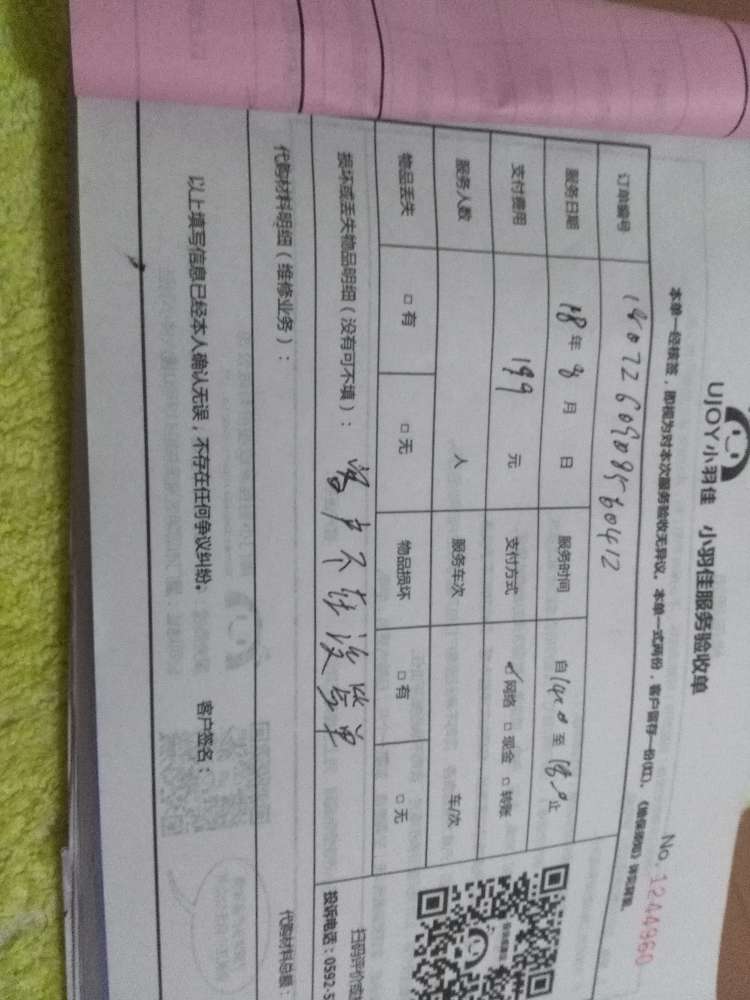 UJOY小羽佳 小羽佳服务验收单
No. 1244960
本单一经核签，即视为对本次服务验收无异议。本单一式两份，客户留存一份(红)。
订单编号
服务日期 18年8月 日 服务时间 自 至 止
支付费用 199 元 支付方式 ✓网络 □现金 □转账
服务人数 人 服务车次 车/次
物品丢失 □有 □无 物品损坏 □有 □无
损坏或丢失物品明细（没有可不填）： 客户不在没签单
代购材料明细（维修业务）： 代购材料总额：
以上填写信息已经本人确认无误，不存在任何争议纠纷。 客户签名：
投诉电话：0592-5